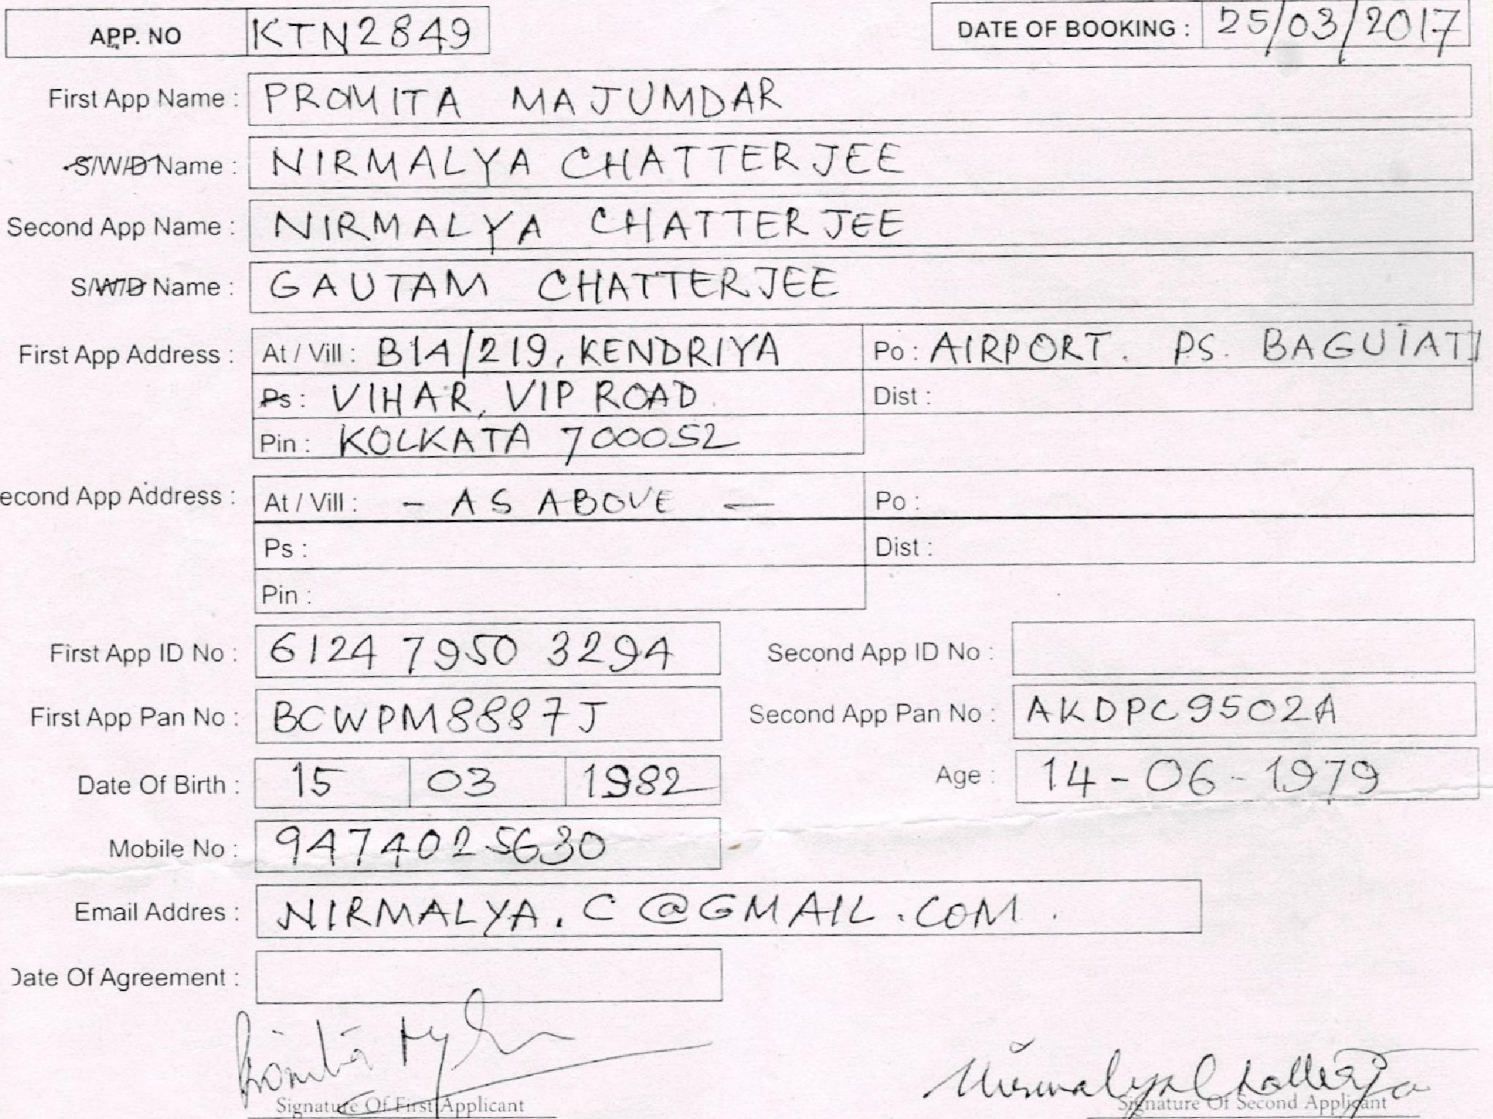 APP. NO KTN2849 DATE OF BOOKING : 25/03/2017
First App Name : PROMITA MAJUMDAR
S/W/D Name : NIRMALYA CHATTERJEE
Second App Name : NIRMALYA CHATTERJEE
S/W/D Name : GAUTAM CHATTERJEE
First App Address : At / Vill : B14/219, KENDRIYA Po : AIRPORT. PS. BAGUIATI
Ps : VIHAR, VIP ROAD Dist :
Pin : KOLKATA 700052
econd App Address : At / Vill : - AS ABOVE - Po :
Ps : Dist :
Pin :
First App ID No : 6124 7950 3294 Second App ID No :
First App Pan No : BCWPM8887J Second App Pan No : AKDPC9502A
Date Of Birth : 15 03 1982 Age : 14-06-1979
Mobile No : 9474025630
Email Addres : NIRMALYA.C@GMAIL.COM.
Date Of Agreement :
Nirmalya Chatterjee
Signature Of First Applicant Signature Of Second Applicant